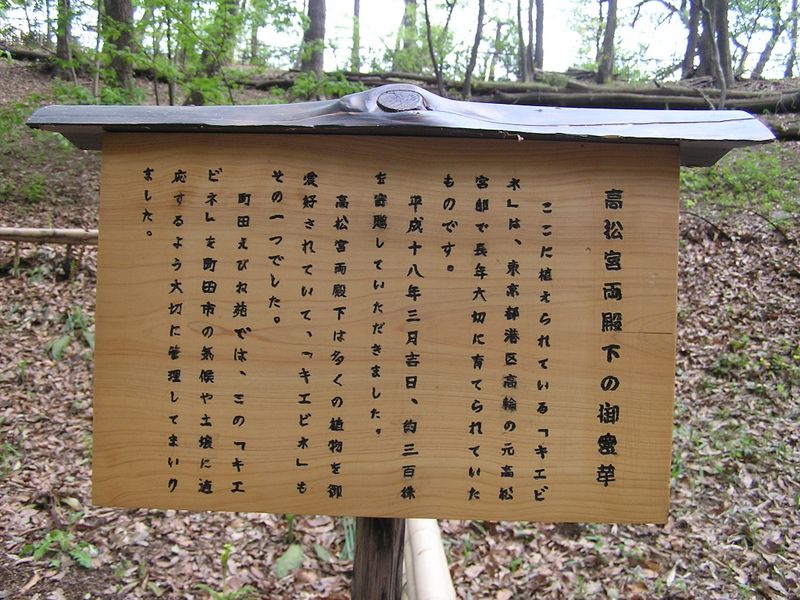 高松宮両殿下の御蜜草
ここに植えられている「キエビ
ネ」は、東京都港区高輪の元高松
宮邸で長年大切に育てられていた
ものです。
平成十八年三月吉日、約三百株
を寄贈していただきました。
高松宮両殿下は多くの植物を御
愛好されていて、「キエビネ」も
その一つでした。
町田えびね苑では、この「キエ
ビネ」を町田市の気候や土壌に適
応するよう大切に管理してまいり
ました。